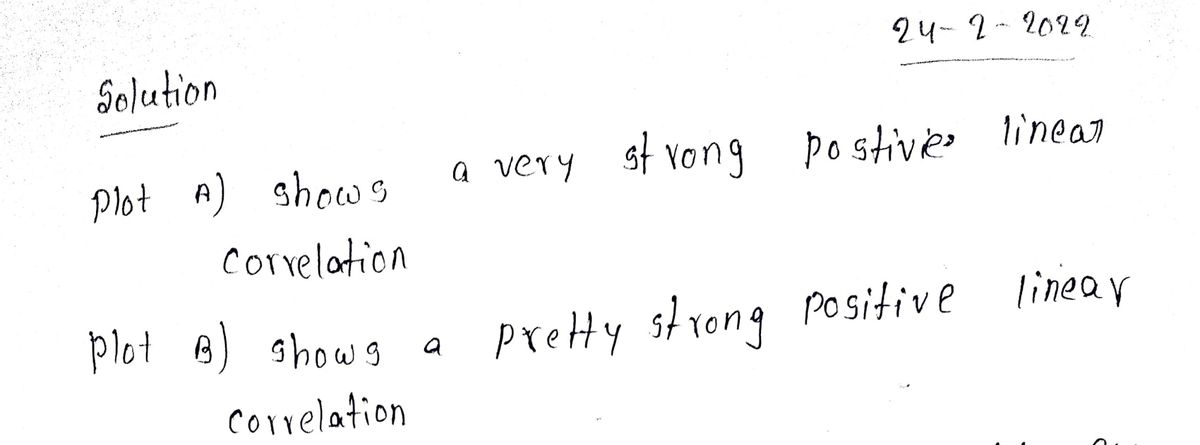 24-2-2022
Solution
Plot A) shows a very strong postive linear
correlation
Plot B) shows a pretty strong positive linear
correlation